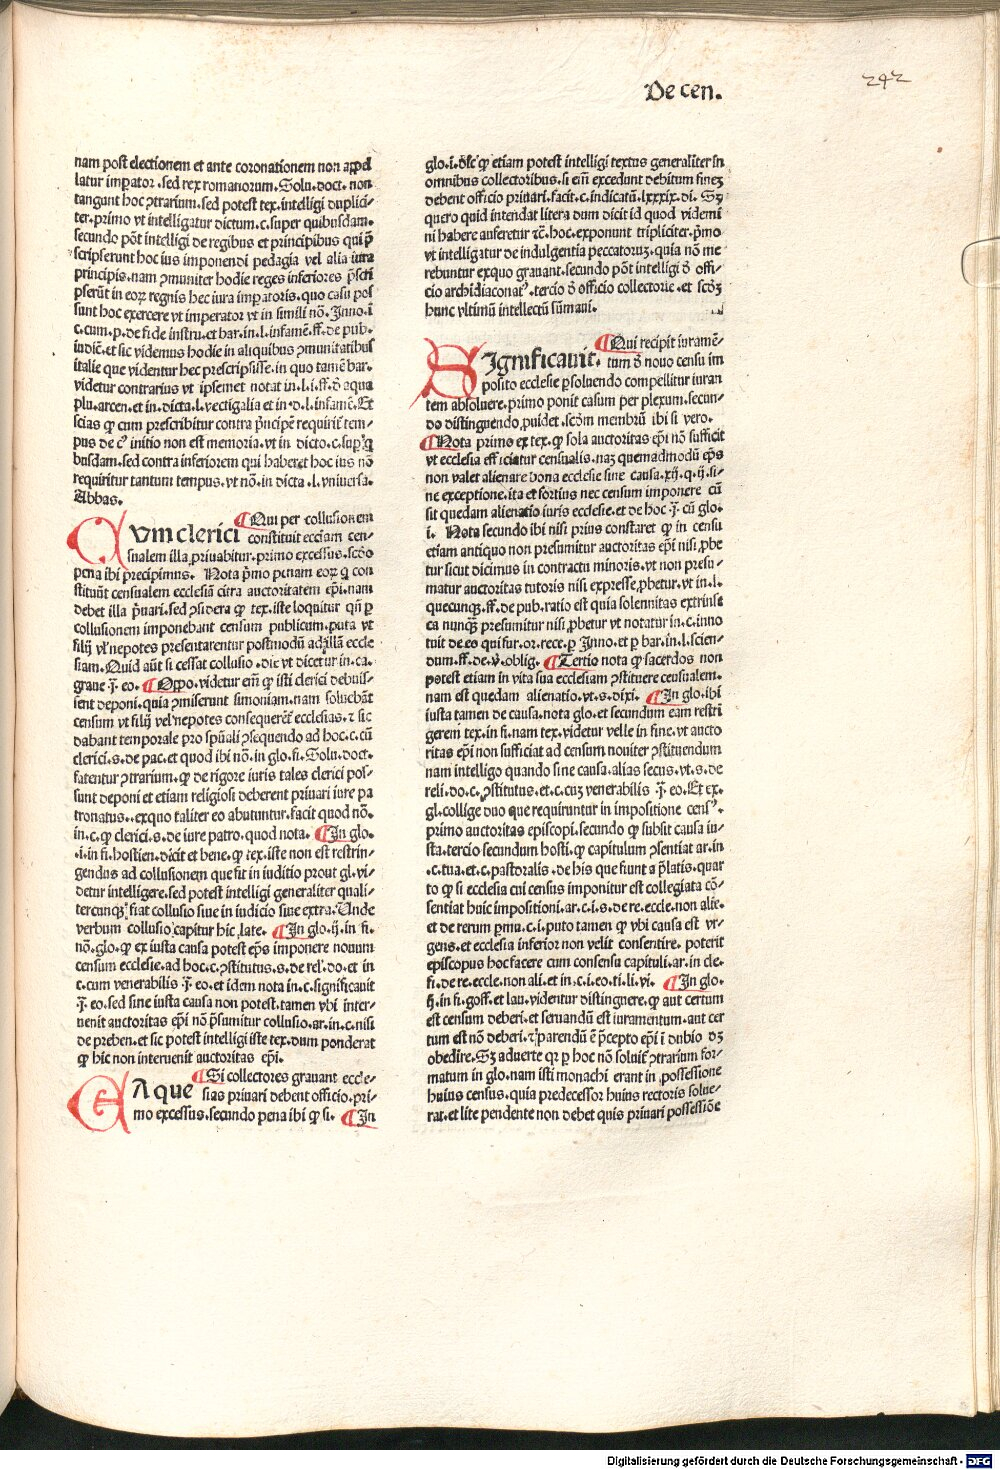 De cen.
242
nam post electionem et ante coronationem non appel
latur imperator. sed rex romanorum. Solu. doct. non
tangunt hoc ꝯtrarium. sed potest tex. intelligi duplici-
ter. primo vt intelligatur dictum. c. super quibusdam.
secundo põt intelligi de regibus et principibus qui p̃
scripserunt hoc ius imponendi pedagia vel alia iura
principis. nam ꝯmuniter hodie reges inferiores p̃scri
pserũt in eoꝝ regnis hec iura impatoris. quo casu pos
sunt hoc exercere vt imperator vt in simili nõ. Inno. ĩ
c. cum. p. de fide instru. et bar. in. l. infamẽ. ff. de pub.
iudic̃. et sic videmus hodie in aliquibus ꝯmunitatibus
italie que videntur hec prescripsisse. in quo tamẽ bar.
videtur contrarius vt ipsemet notat in. l. i. ff. ð aqua
plu. arcen. et in. dicta. l. vectigalia et in. d. l. infamẽ. Et
scias ꝙ cum prescribitur contra p̃ncipẽ requirit̃ tem-
pus de cꝰ initio non est memoria. vt in dicto. c. suꝑ q̃
busdam. sed contra inferiorem qui haberet hoc ius nõ
requiritur tantum tempus. vt nõ. in dicta. l. vniuersa.
Abbas.
¶ Qui per collusionem
CVm clerici constituit ecciam cen-
sualem illa priuabitur. primo excessus. scðo
pena ibi precipimus. Nota p̃mo penam eoꝝ q̃ con
stituũt censualem ecclesiã citra auctoritatem ep̃i. nam
debet illa p̃uari. sed ꝯsidera ꝙ tex. iste loquitur qñ ꝑ
collusionem imponebant censum publicum. puta vt
filij vl̃ nepotes presentarentur postmodũ ad illã eccle
siam. Quid aũt si cessat collusio. dic vt dicetur in. ca.
graue ĩ. eo. ¶ Oppo. videtur em̃ ꝙ isti clerici debuis-
sent deponi. quia ꝯmiserunt simoniam. nam soluebãt
censum vt filij vel nepotes consequerẽt̃ ecclesias. ⁊ sic
dabant temporale pro spũali ꝯsequendo ad hoc. c. cũ
clerici. s. de pac. et quod ibi nõ. in glo. fi. Solu. doct.
fatentur ꝯtrarium. ꝙ de rigore iuris tales clerici pos-
sunt deponi et etiam religiosi deberent priuari iure pa
tronatus. exquo taliter eo abutuntur. facit quod nõ.
in. c. ꝙ clerici. s. de iure patro. quod nota. ¶ In glo.
.i. in fi. hostien. dicit et bene. ꝙ tex. iste non est restrin-
gendus ad collusionem que fit in iuditio prout gl. vi-
detur intelligere. sed potest intelligi generaliter quali-
tercunqꝫ fiat collusio siue in iudicio siue extra. Unde
verbum collusio capitur hic late. ¶ In glo. ij. in fi.
nõ. glo. ꝙ ex iusta causa potest ep̃s imponere nouum
censum ecclesie. ad hoc. c. ꝯstitutus. s. de rel'. do. et in
c. cum venerabilis ĩ. eo. et idem nota in. c. significauit
ĩ. eo. sed sine iusta causa non potest. tamen vbi inter-
uenit auctoritas ep̃i nõ p̃sumitur collusio. ar. in. c. nisi
de preben. et sic potest intelligi iste tex. dum ponderat
ꝙ hic non interuenit auctoritas ep̃i.
¶ Si collectores grauant eccle-
EA que sias priuari debent officio. pri-
mo excessus. secundo pena ibi ꝙ si. ¶ In
glo. i. ðic̃ ꝙ etiam potest intelligi textus generaliter in
omnibus collectoribus. si em̃ excedunt debitum finez
debent officio priuari. facit. c. indicatũ. lxxxix. di. Sꝫ
quero quid intendat litera dum dicit id quod videmi
ni habere auferetur ⁊c̃. hoc. exponunt tripliciter. p̃mo
vt intelligatur de indulgentia peccatoruꝫ. quia nõ me
rebuntur exquo grauant. secundo põt intelligi ð offi-
cio archidiaconatꝰ. tercio ð officio collectorie. et scðꝫ
hunc vltimũ intellectũ sũmaui.
¶ Qui recipit iuramẽ-
SIgnificauit. tum ð nouo censu im
posito ecclesie ꝑsoluendo compellitur iuran
tem absoluere. primo ponit casum per plexum. secun-
do distinguendo ꝓuidet. scðm membrũ ibi si vero.
¶ Nota primo ex tex. ꝙ sola auctoritas ep̃i nõ sufficit
vt ecclesia efficiatur censualis. naꝫ quemadmodũ ep̃s
non valet alienare bona ecclesie sine causa. xij. q. ij. si-
ne exceptione. ita et fortius nec censum imponere cũ
sit quedam alienatio iuris ecclesie. et de hoc ĩ. cũ glo.
i. Nota secundo ibi nisi prius constaret ꝙ in censu
etiam antiquo non presumitur auctoritas ep̃i nisi ꝓbe
tur sicut dicimus in contractu minoris. vt non presu-
matur auctoritas tutoris nisi expresse ꝓbetur. vt in. l.
quecunqꝫ. ff. de pub. ratio est quia solennitas extrinse
ca nunqꝫ presumitur nisi ꝓbetur vt notatur in. c. inno
tuit de eo qui fur. or. rece. ꝑ Inno. et ꝑ bar. in. l. scien-
dum. ff. de. v̾. oblig. ¶ Tertio nota ꝙ sacerdos non
potest etiam in vita sua ecclesiam ꝯstituere censualem.
nam est quedam alienatio. vt. s. dixi. ¶ In glo. ibi
iusta tamen de causa. nota glo. et secundum eam restri
gerem tex. in fi. nam tex. videtur velle in fine. vt aucto
ritas ep̃i non sufficiat ad censum nouiter ꝯstituendum
nam intelligo quando sine causa. alias secus. vt. s. de
reli. do. c. ꝯstitutus. et. c. cuꝫ venerabilis ĩ. eo. Et ex.
gl. collige duo que requiruntur in impositione censꝰ.
primo auctoritas episcopi. secundo ꝙ subsit causa iu-
sta. tercio secundum hosti. ꝙ capitulum ꝯsentiat ar. in
.c. tua. et. c. pastoralis. de his que fiunt a p̃latis. quar
to ꝙ si ecclesia cui census imponitur est collegiata cõ-
sentiat huic impositioni. ar. c. i. s. de re. eccle. non alie.
et de rerum ꝑmu. c. i. puto tamen ꝙ vbi causa est vr-
gens. et ecclesia inferior non velit consentire. poterit
episcopus hoc facere cum consensu capituli. ar. in cle.
fi. de re. eccle. non ali. et in. c. i. eo. ti. li. vi. ¶ In glo.
ij. in fi. goff. et lau. videntur distingnere. ꝙ aut certum
est censum deberi. et seruandũ est iuramentum. aut cer
tum est nõ deberi. ⁊ parendũ ẽ p̃cepto ep̃i ĩ dubio dꝫ
obedire. Sꝫ aduerte qꝛ ꝑ hoc nõ soluit̃ ꝯtrarium for-
matum in glo. nam isti monachi erant in possessione
huius census. quia predecessor huius rectoris solue-
rat. et lite pendente non debet quis priuari possessiõe
Digitalisierung gefördert durch die Deutsche Forschungsgemeinschaft - DFG